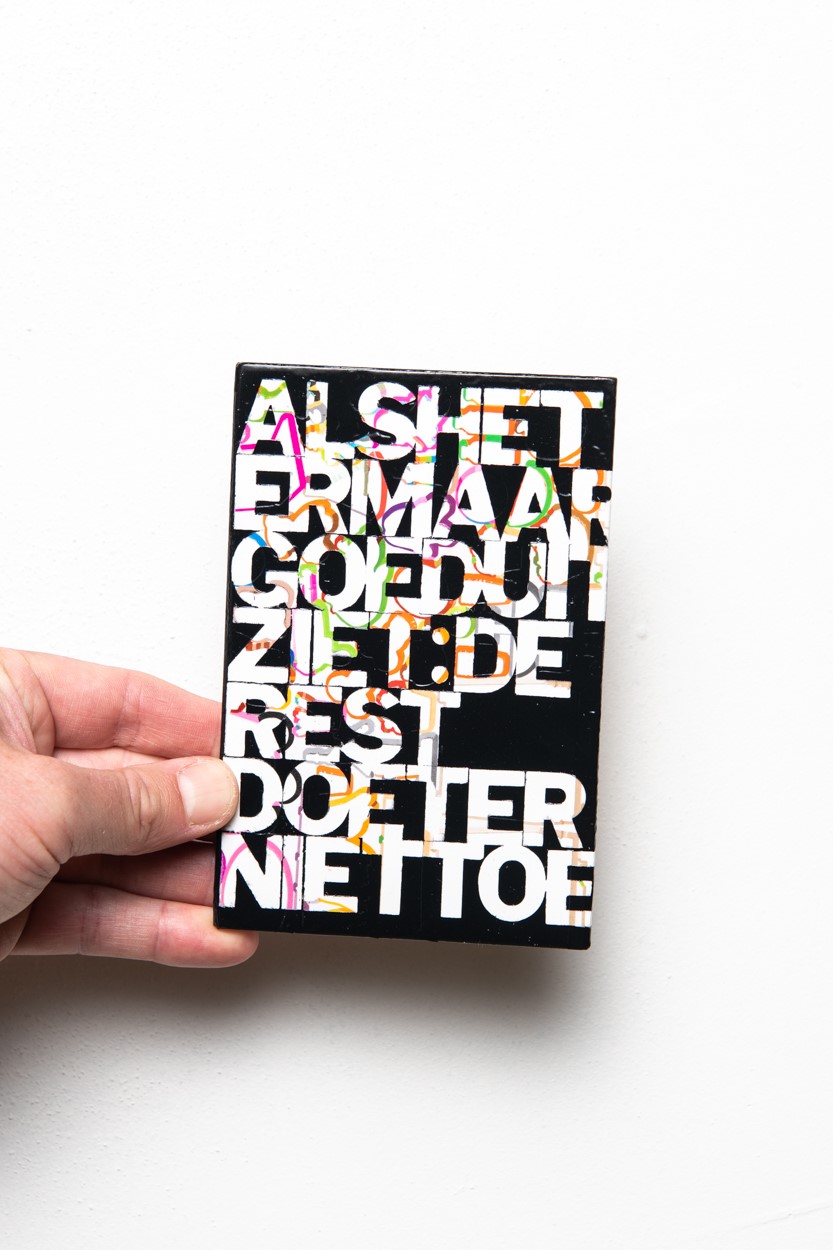 ALSHET
ERMAAR
GOEDUIT
ZIET:DE
REST
DOETER
NIETTOE